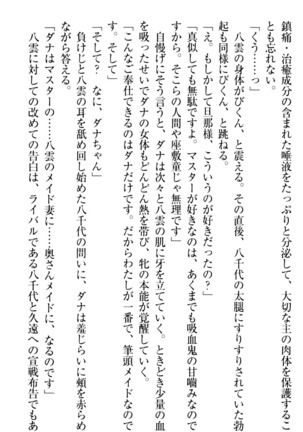 鎮痛・治癒成分の含まれた唾液をたっぷりと分泌して、大切な主の肉体を保護するこ
とも忘れない。
「くう……っ」
八雲の身体がびくん、と震える。その直後、八千代の太腿にすりすりされていた勃
起も同様にびくん、と跳ねる。
「え。もしかして旦那様、こういうのが好きだったの？」
「真似しても無駄ですよ。マスターが好きなのは、あくまでも吸血鬼の甘噛みなので
すから。そこらの人間や座敷童じゃ無理です」
自慢げにそう言うと、ダナは次々と八雲の肌に牙を立てていく。ときどき少量の血
を吸ったせいでダナの女体もどんどん熱を帯び、牝の本能が覚醒していく。
「こんなご奉仕できるのはダナだけです。だからわたしが一番で、筆頭メイドなので
す。そして」
「そして？　なに、ダナちゃん」
負けじと八雲の耳を舐め回し始めた八千代の問いに、ダナは羞じらいに頬を赤らめ
ながら答える。
「ダナはマスターの……八雲のメイド妻に……奥さんメイドに、なるのです」
八雲に対しての改めての告白は、ライバルである八千代と久遠への宣戦布告でもあ